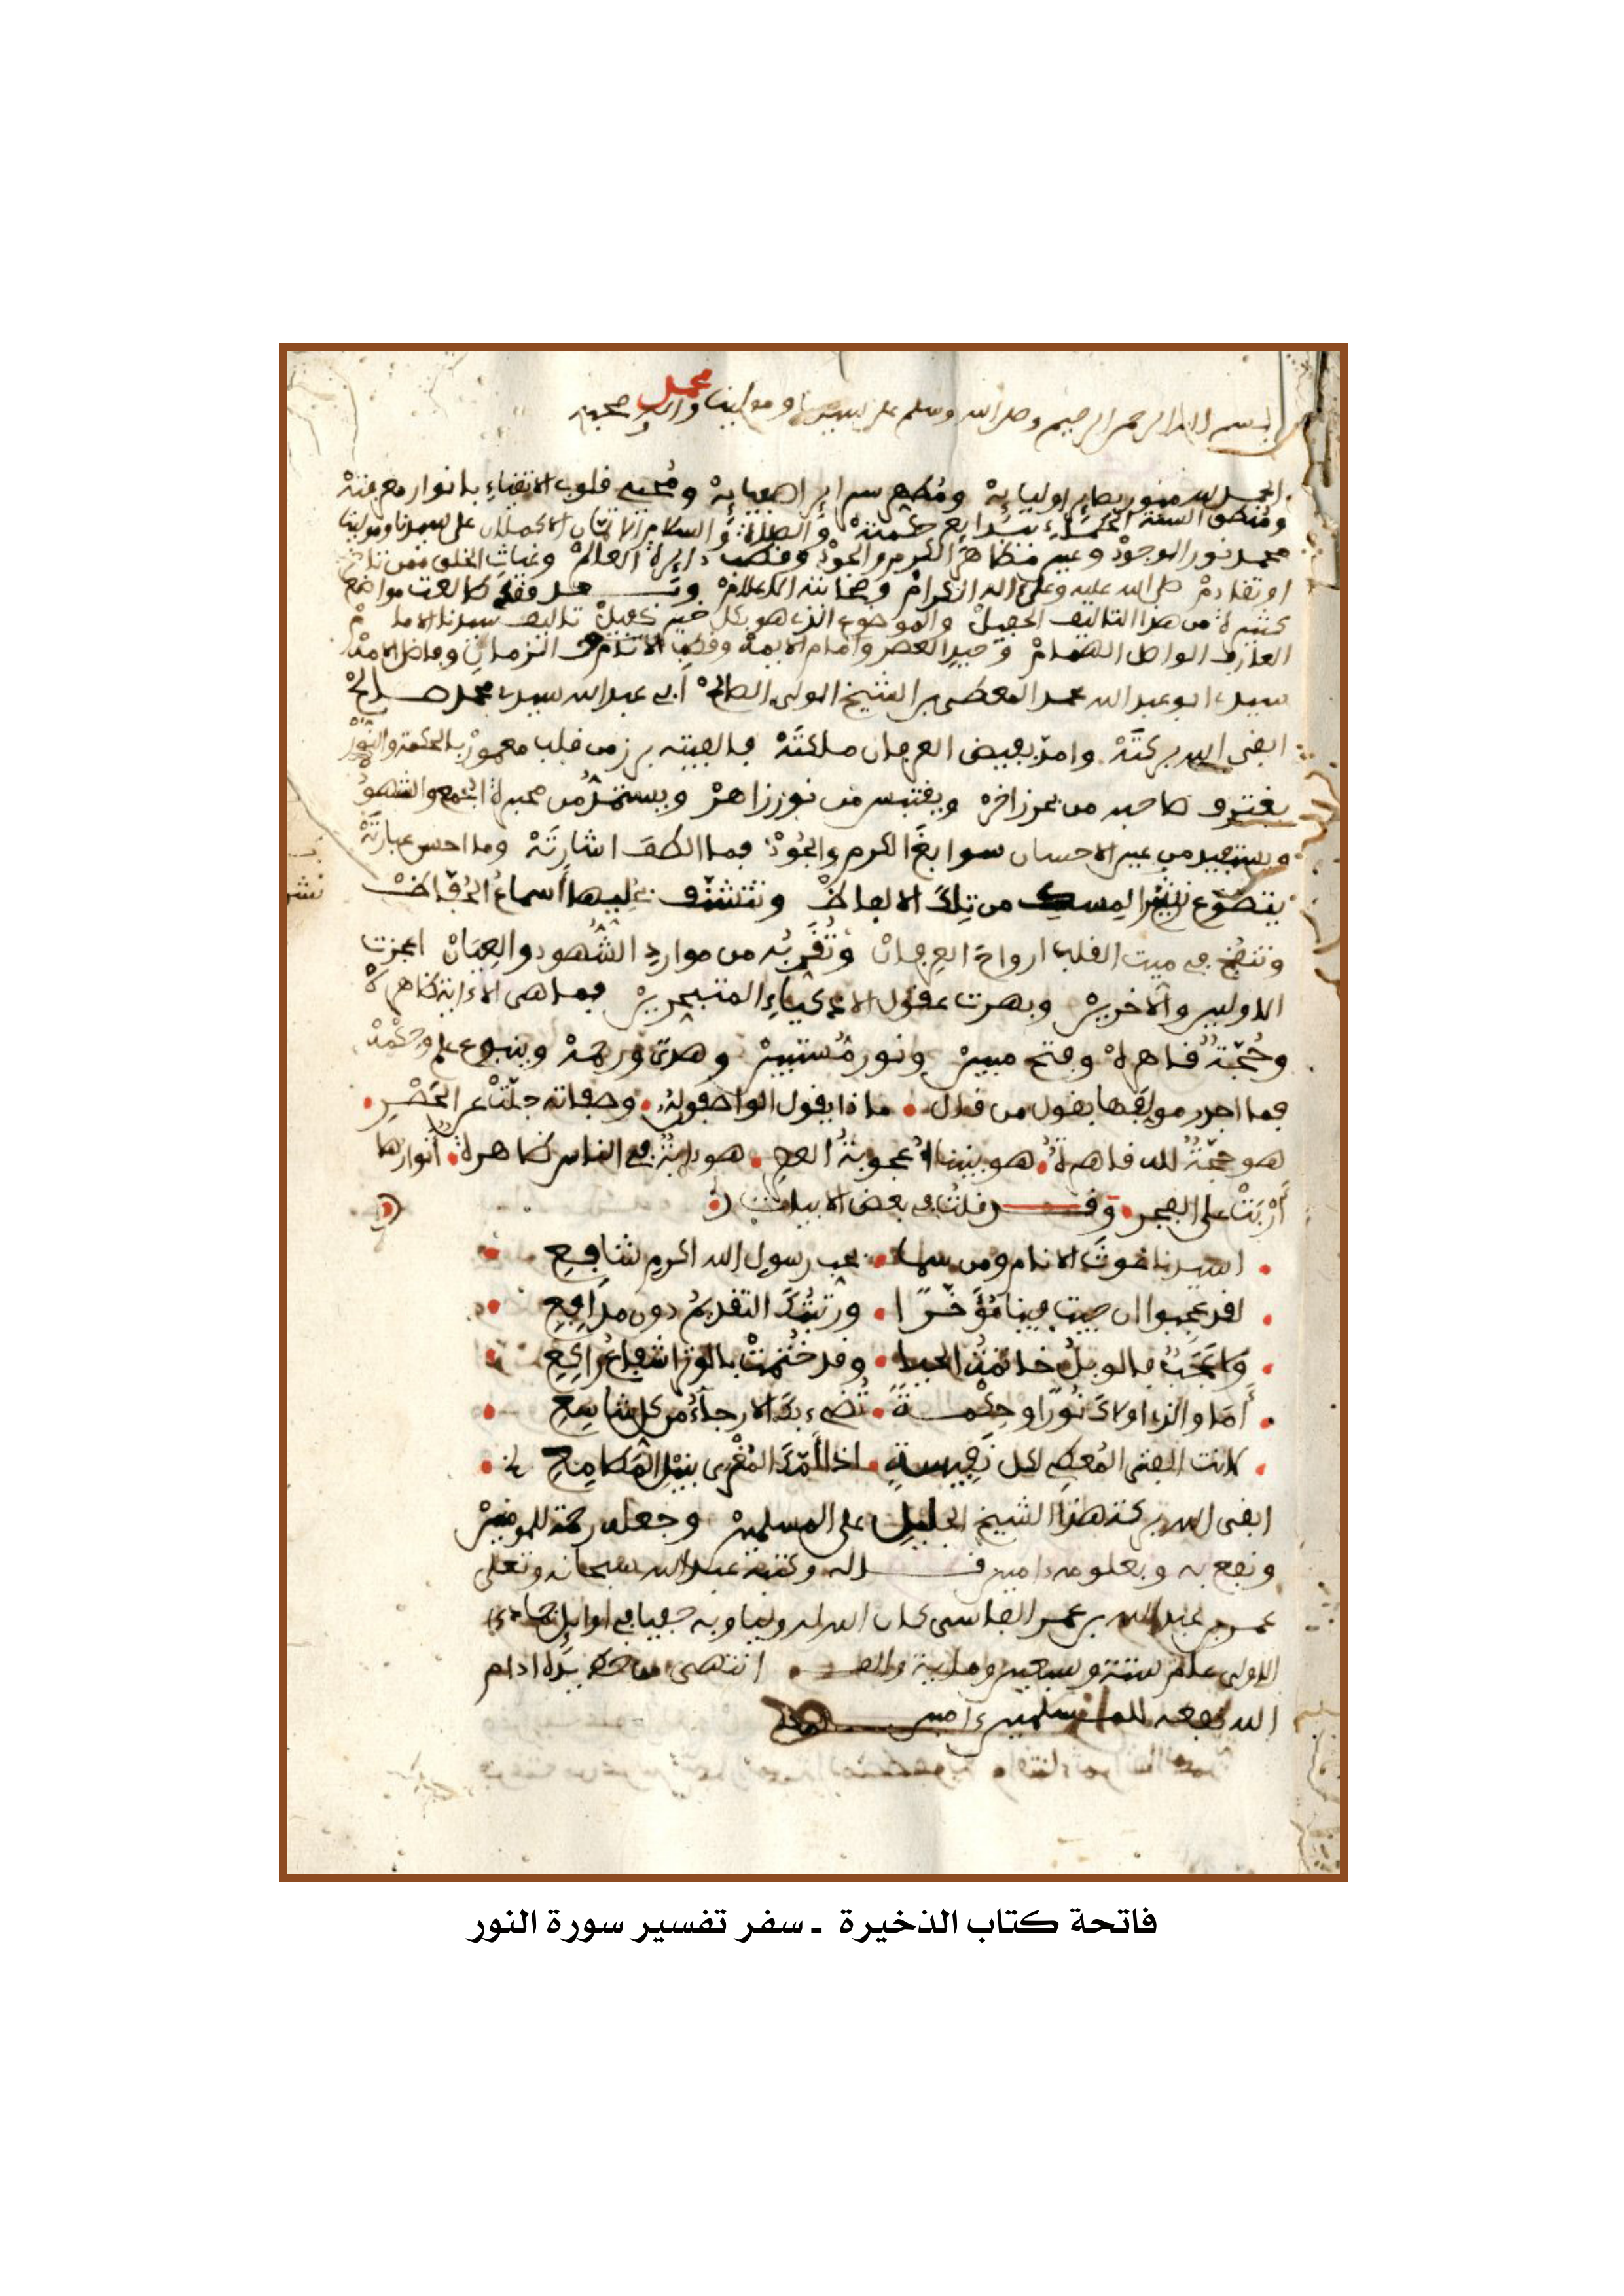 بسم الله الرحمن الرحيم وصلى الله وسلم على سيدنا ومولينا محمد واله وصحبه
الحمد لله منور بصاير اوليايه ومطهر سراير اصفيايه ومحيي قلوب الاتقياء بانوار معرفته
ومنطق السنة الحكماء ببدايع حكمته والصلاة والسلام الاتمان الاكملان على سيدنا ومولينا
محمد نور الوجود وعين مظاهر الكرم والجود وقطب دايرة العالم وغياث الخلق ممن تاخر
او تقادم صلى الله عليه وعلى اله الكرام وصحابته الاعلام وبعد فقد طالعت مواضع
كثيرة من هذا التاليف الجميل والموضوع الذي هو بكل خير كفيل تاليف سيدنا الامام
العارف الواصل الهمام وحيد العصر وامام الايمة وقطب الزمان
سيدي ابو عبد الله محمد المعطى بن الشيخ الولي الصالح أبي عبد الله سيدي محمد صالح
ابقى الله بركته وامد بفيض العرفان ملكته فالفيته برز من قلب معمور بالحكمة والنور
يغترف صاحبه من بحر زاخر ويقتبس من نور زاهر ويستمد من الجمع والشهود
من عين الاحسان سوابغ الكرم والجود فما الطف اشارته وما احسن عبارته
يتضوع نشر المسك من تلك الالفاظ وتتشنف بحليها أسماع الحفاظ
وتنفخ في ميت القلب ارواح العرفان وتقربه من موارد الشهود والعيان اعجزت
الاولين والاخرين وبهرت عقول الاذكياء المتبحرين فما هي الا ءاية ظاهرة
وحجة قاهرة وفتح مبين ونور مستبين وهدى ورحمة وينبوع علم وحكمة
فما اجدر مولفها بقول من قال ماذا يقول الواصفون له وصفاته جلت عن الحصر
هو حجة لله قاهرة هو بيننا اعجوبة الدهر هو ءاية في الناس ظاهرة أنوارها
أربت على الفجر وقد قلت في بعض الابيات
اسيدنا غوث الانام ومن سما بحب رسول الله اكرم شافع
لقد عجبوا ان جيت فينا مؤخرا ورتبتك التقديم دون مدافع
ولا عجب فالوبل خاتمة الحيا وقد ختمت بالوتر اشفاع راكع
أما والذي اولاك نورا وحكمة تضيء بك الارجاء من كل شاسع
لانت الفتى المعطى لكل نفيسة اذا المغرى بنيل المطامع
ابقى الله بركة هذا الشيخ الجليل على المسلمين وجعله رحمة للمومنين
ونفع به وبعلومه ءامين قاله وكتبه عبد الله سبحانه وتعلى
عمر بن عبد الله بن عمر الفاسي كان الله له وليا وبه حفيا في اوايل جمادى
الاولى عام ستة وسبعين وماية والف انتهى من خط يده ادام
الله نفعه للمسلمين ءامين
فاتحة كتاب الذخيرة ـ سفر تفسير سورة النور